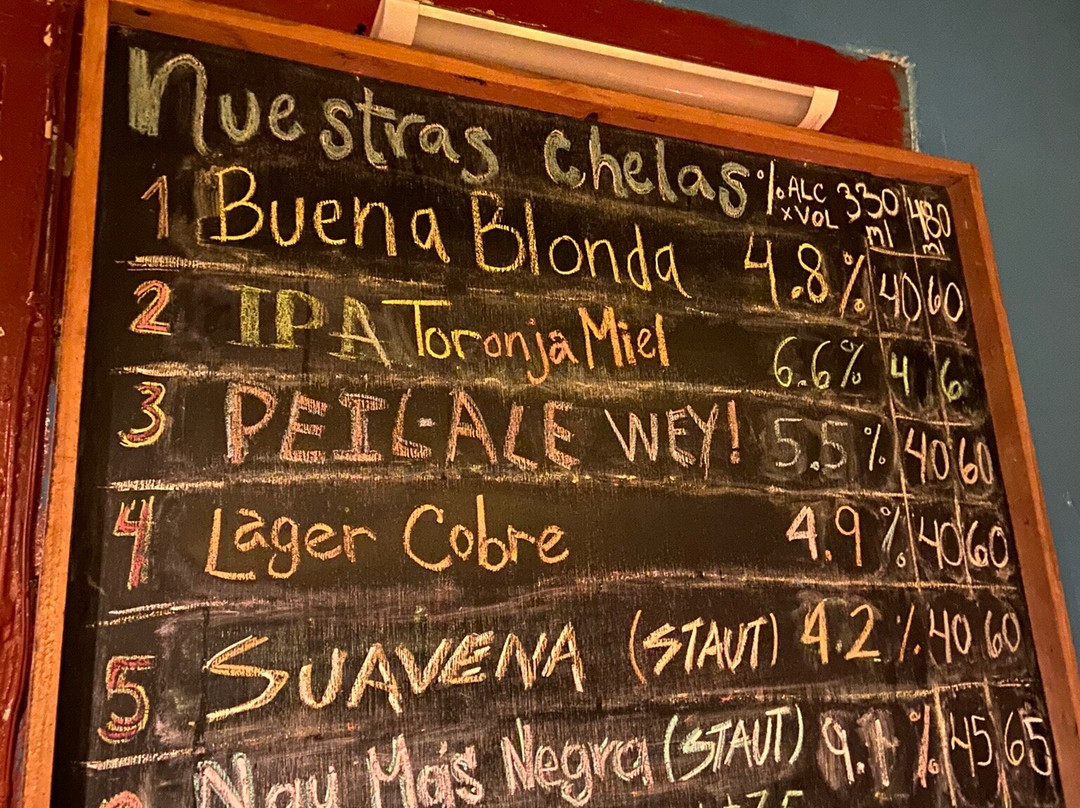 Nuestras chelas % ALC x VOL 330 ml 480 ml
1 Buena Blonda 4.8% 40 60
2 IPA Toronja Miel 6.6% 4 6
3 PEIL-ALE WEY! 5.5% 40 60
4 Lager Cobre 4.9% 40 60
5 SUAVENA (STAUT) 4.2% 40 60
Nau Más Negra (STAUT) 9.1% 45 65